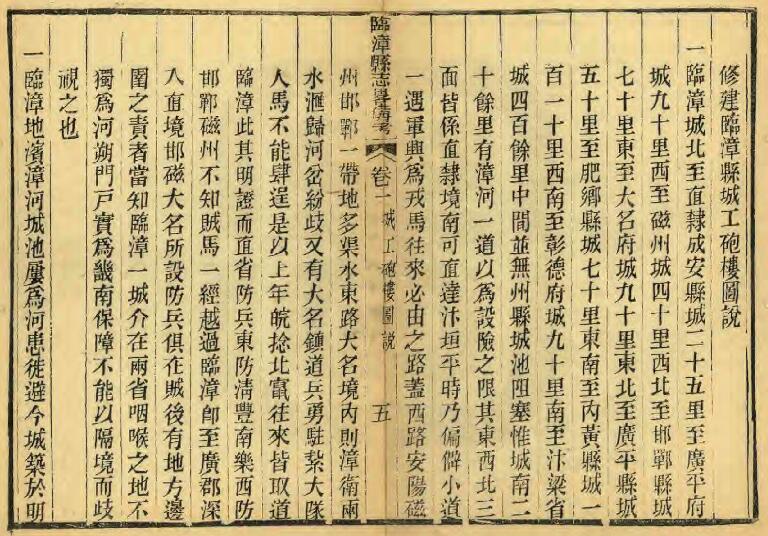 修建臨漳縣城工砲樓圖說
一臨漳城北至直隸成安縣城二十五里至廣平府
城九十里西至磁州城四十里西北至邯鄲縣城
七十里東至大名府城九十里東北至廣平縣城
五十里至肥鄉縣城七十里東南至內黃縣城一
百一十里西南至彰德府城九十里南至汴梁省
城四百餘里中間並無州縣城池阻塞惟城南二
十餘里有漳河一道以為設險之限其東西北三
面皆係直隸境南可直達汴垣平時乃偏僻小道
一遇軍興為戎馬往來必由之路蓋西路安陽磁
臨漳縣志畧備考 卷一 城工砲樓圖說 五
州邯鄲一帶地多渠水東路大名境內則漳衛兩
水滙歸河岔紛歧又有大名鎮道兵勇駐紮大隊
人馬不能肆逞是以上年皖捻北竄往來皆取道
臨漳此其明證而直省防兵東防清豐南樂西防
邯鄲磁州不知賊馬一經越過臨漳卽至廣郡深
入直境邯磁大名所設防兵俱在賊後有地方邊
圉之責者當知臨漳一城介在兩省咽喉之地不
獨為河朔門戶實為畿南保障不能以隔境而歧
視之也
一臨漳地濱漳河城池屢為河患徙避今城築於明